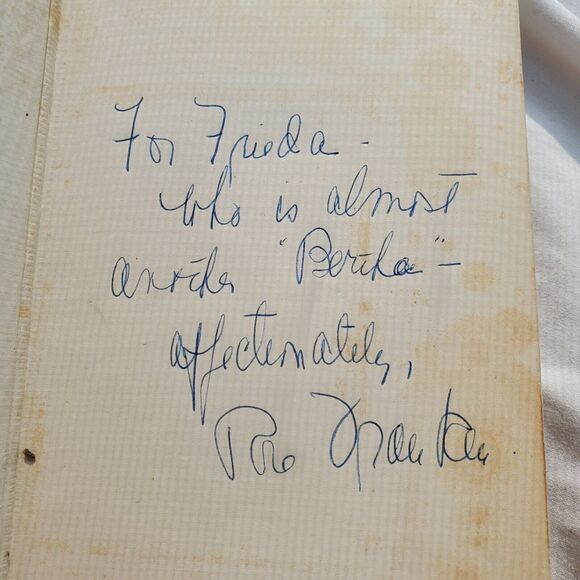 For Frieda -
who is almost
another "Bertha" -
affectionately,
Rose Franken